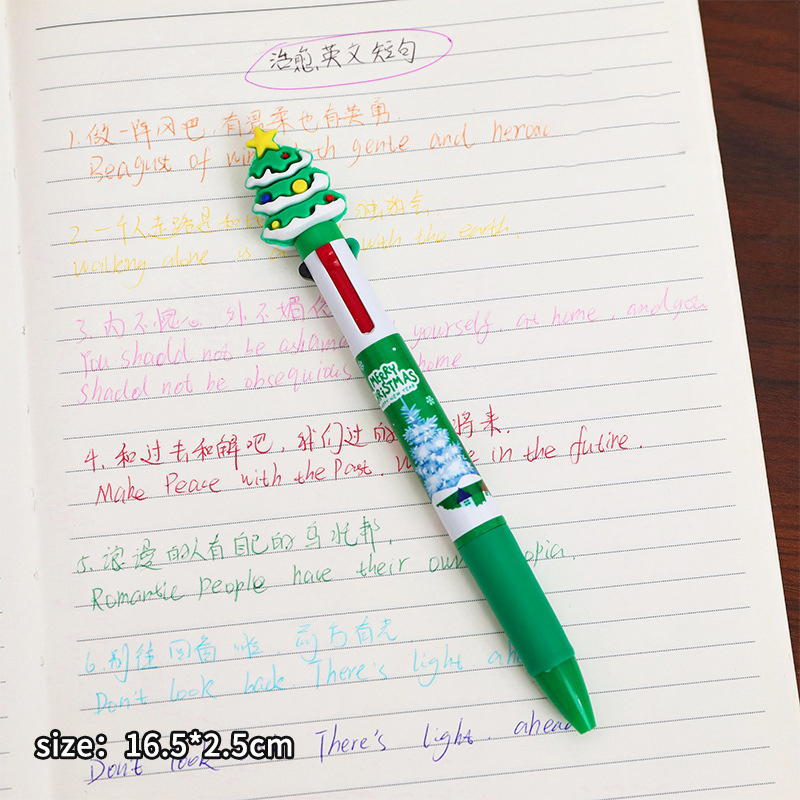 治愈英文短句
1. 做一阵风吧, 有温柔也有英勇.
Beagust of both gentle and heroic
2. 一个人走路是和
walking alone is with the earth.
3. 内不愧心, 外不媚俗
You shadd not be ashamed yourself, at home, and you
shadd not be obsequious home.
4. 和过去和解吧, 我们过的 将来.
Make Peace with the Past. in the futire.
5. 浪漫的人有自己的乌托邦.
Romantic People have their own topia.
6. 别往回看啦, 前方有光.
Don't look back. There's light ahead
Don't look There's light. ahead
MERRY CHRISTMAS
size: 16.5*2.5cm